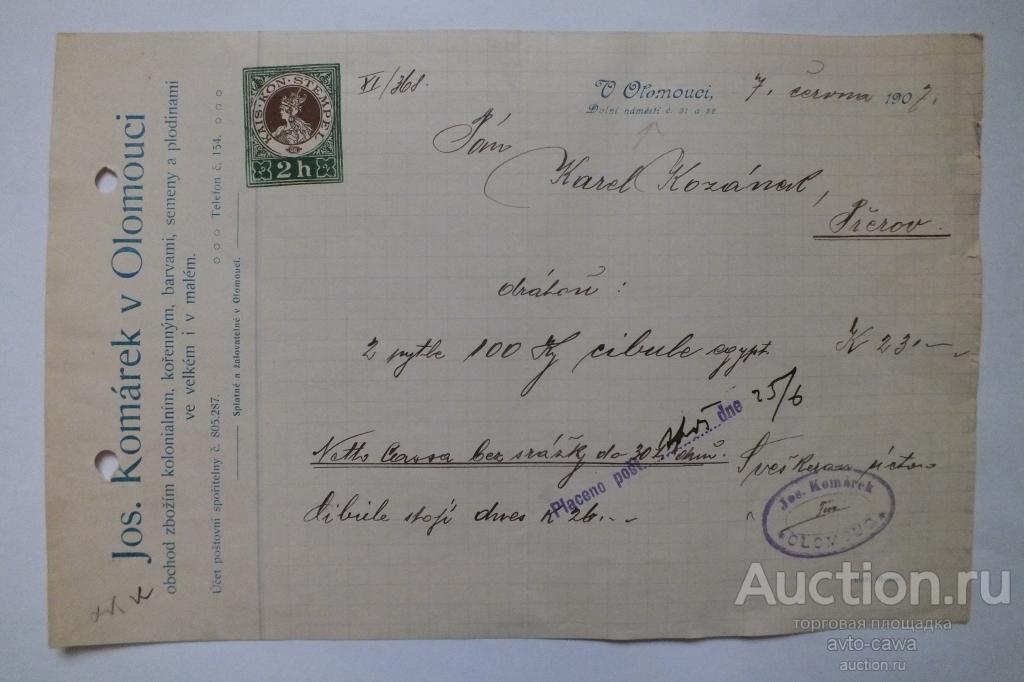 Jos. Komárek v Olomouci
obchod zbožím kolonialním, kořenným, barvami, semeny a plodinami
ve velkém i v malém.
Účet poštovní spořitelny č. 805.287. ○ ○ ○ Telefon č. 154. ○ ○ ○
Splatné a žalovatelné v Olomouci.
KAIS·KÖN·STEMPEL
2 h
VI/368.
V Olomouci, 7. června 1907.
Dolní náměstí č. 31 a 32.
Pán
Karel Kozánek,
Přerov.
2 pytle 100 Kg cibule egypt K 23.—
Placeno pošt. spoř. dne 25/6
Netto Cassa bez srážky do 30 dnů.
Cibule stojí dnes K 26.—
Jos. Komárek
OLOMOUC
Auction.ru
торговая площадка
avto-cawa
auction.ru